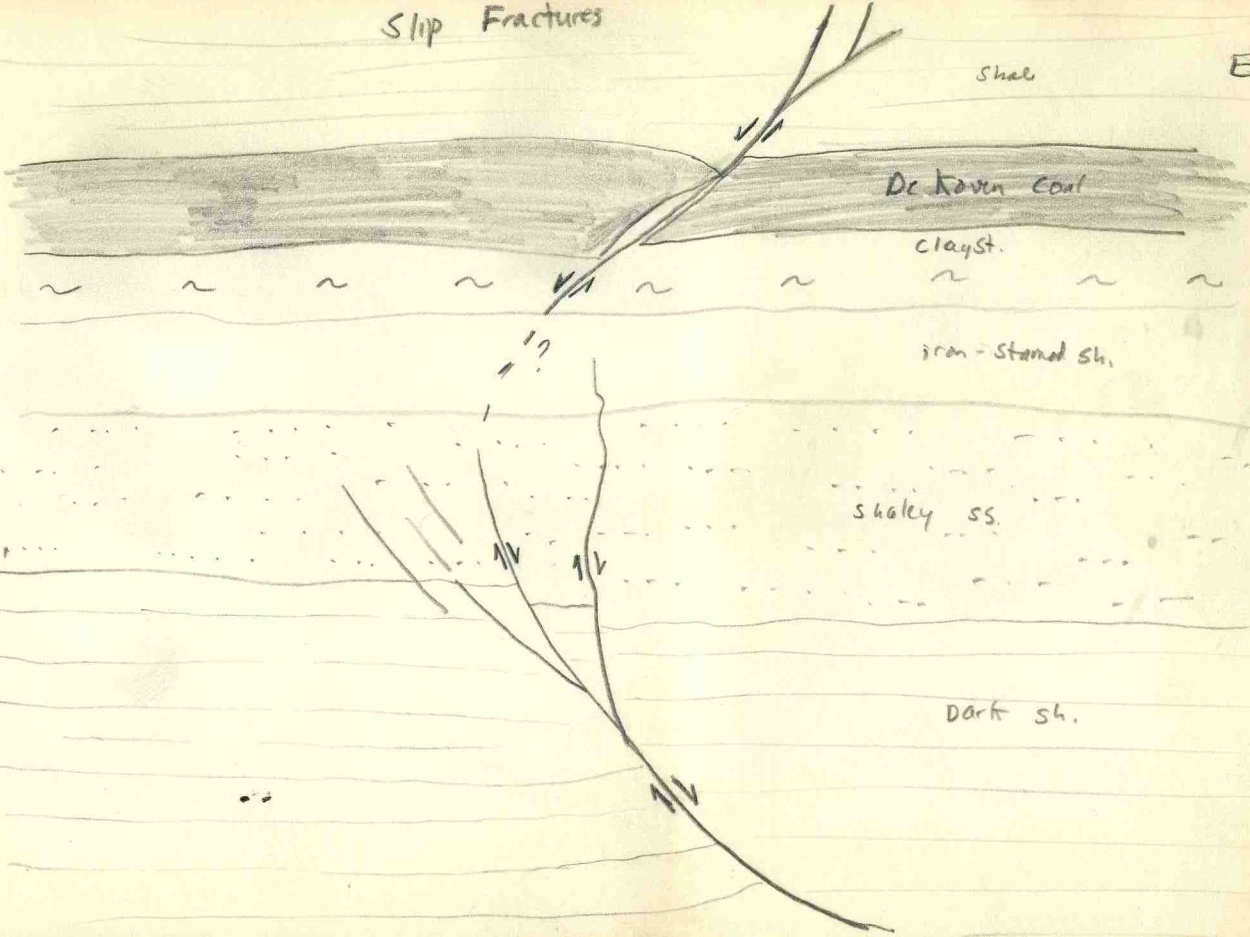 Slip Fractures
Shale
E
De Koven Coal
Clayst.
?
iron-stained sh.
shaley ss.
Dark sh.